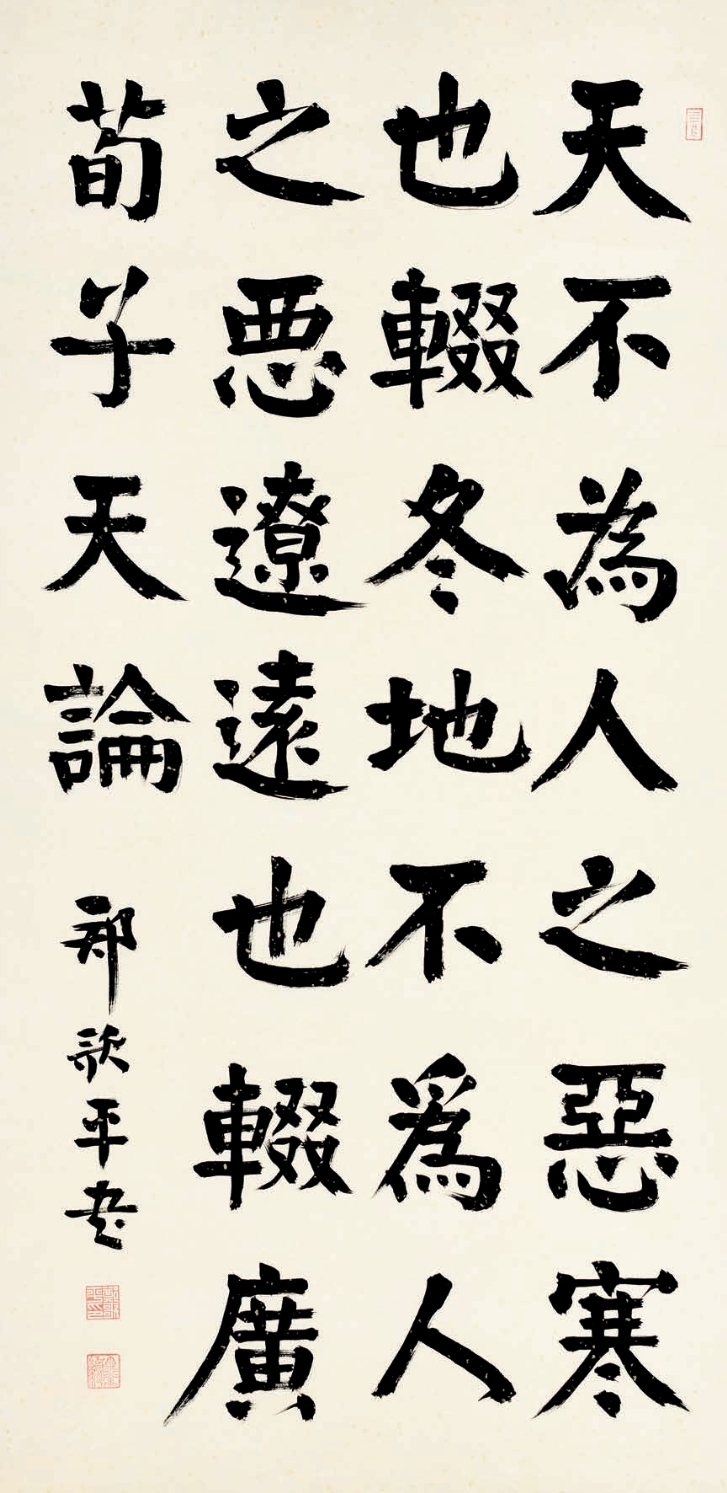 天不為人之惡寒
也輟冬地不爲人
之悪遼遠也輟廣
荀子天論
郑歌平書